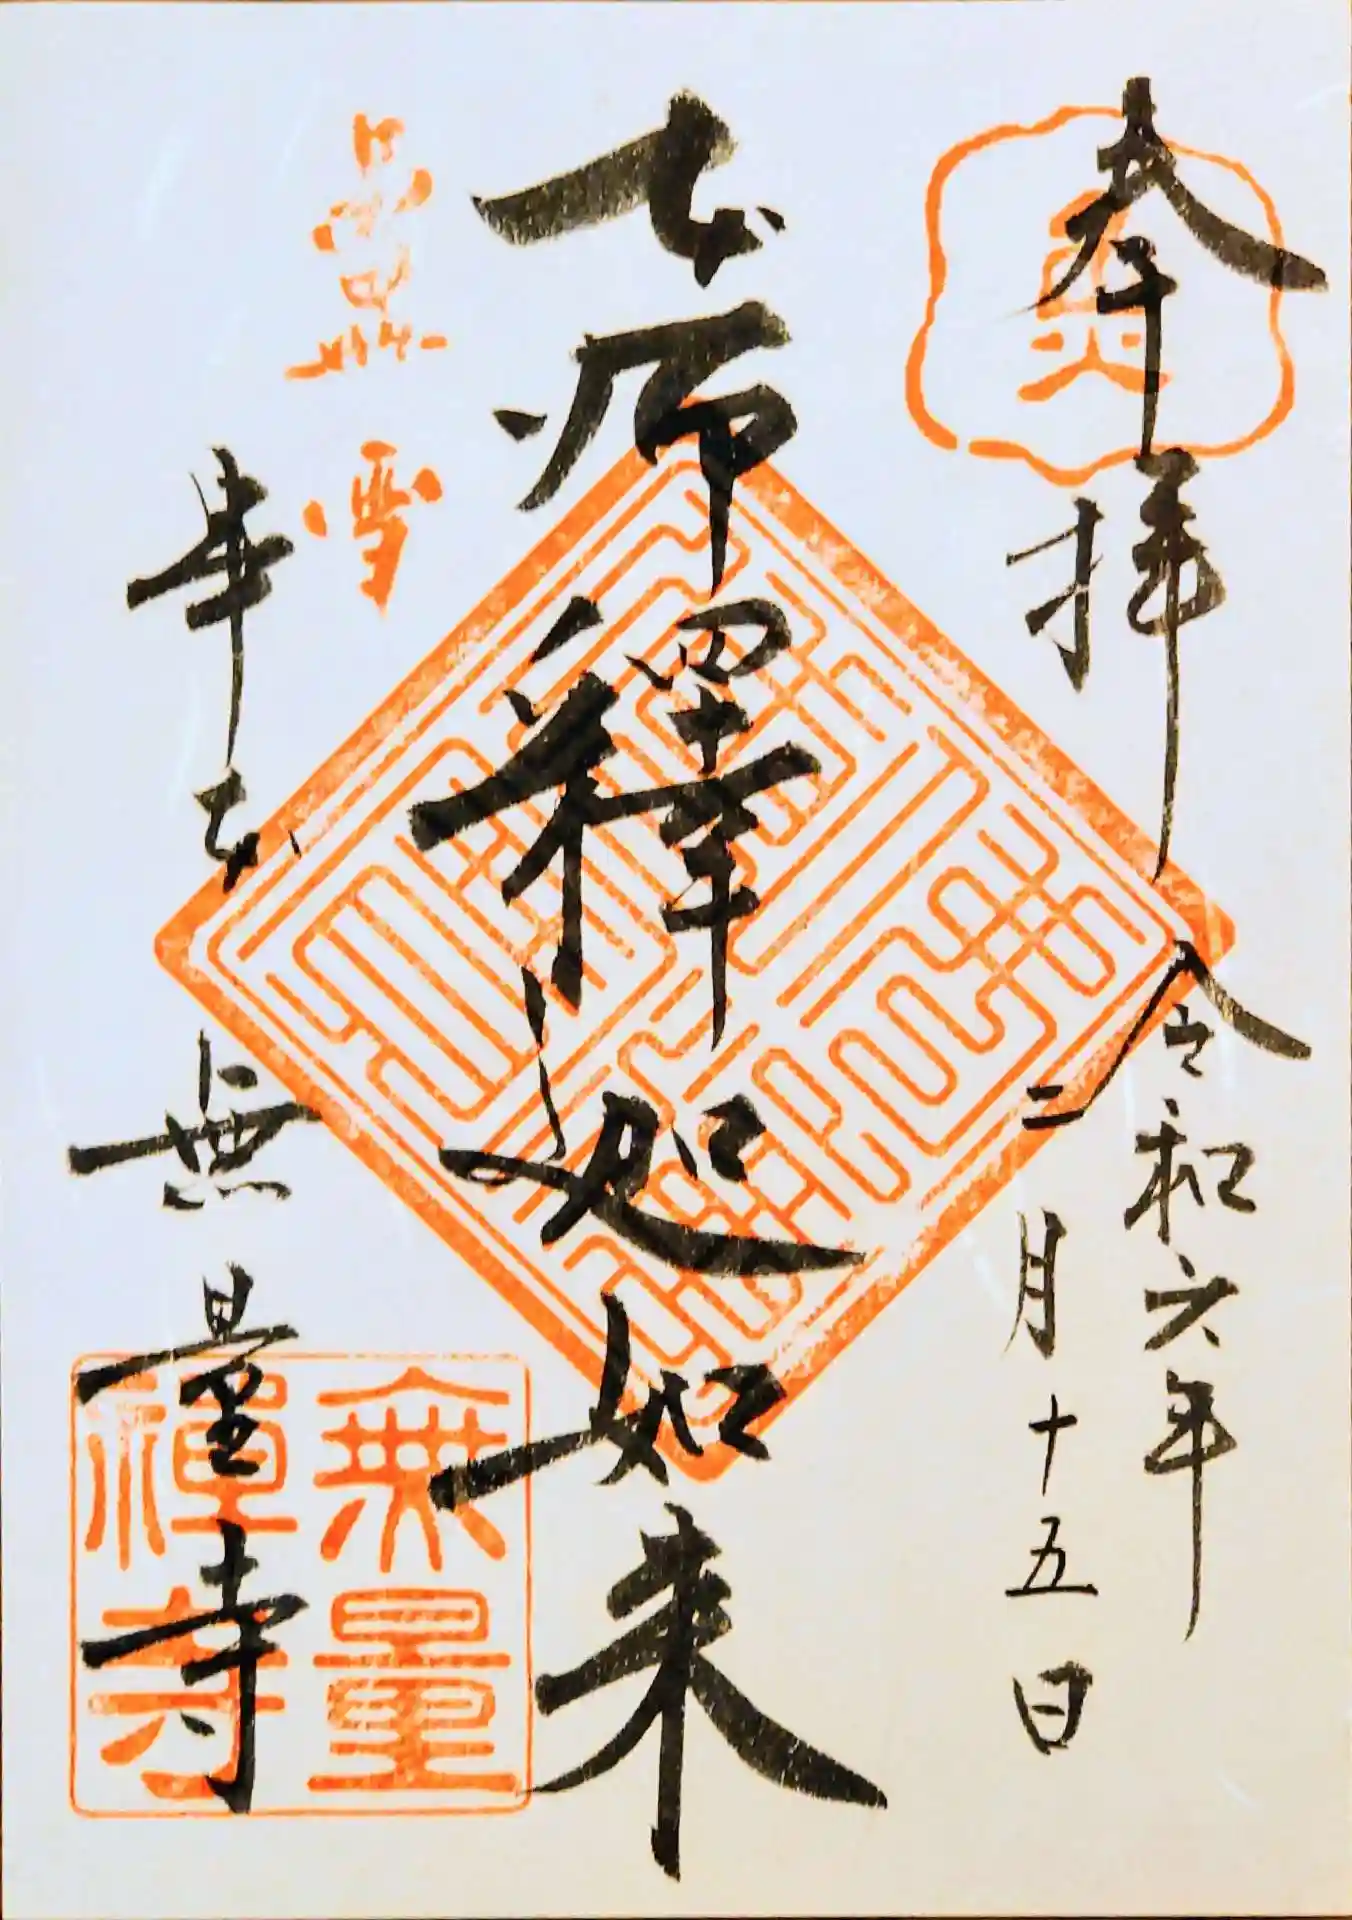 奉拝
令和六年
二月十五日
本師釋迦如来
蘆雪
串本 無量寺
魚
無量
禪寺